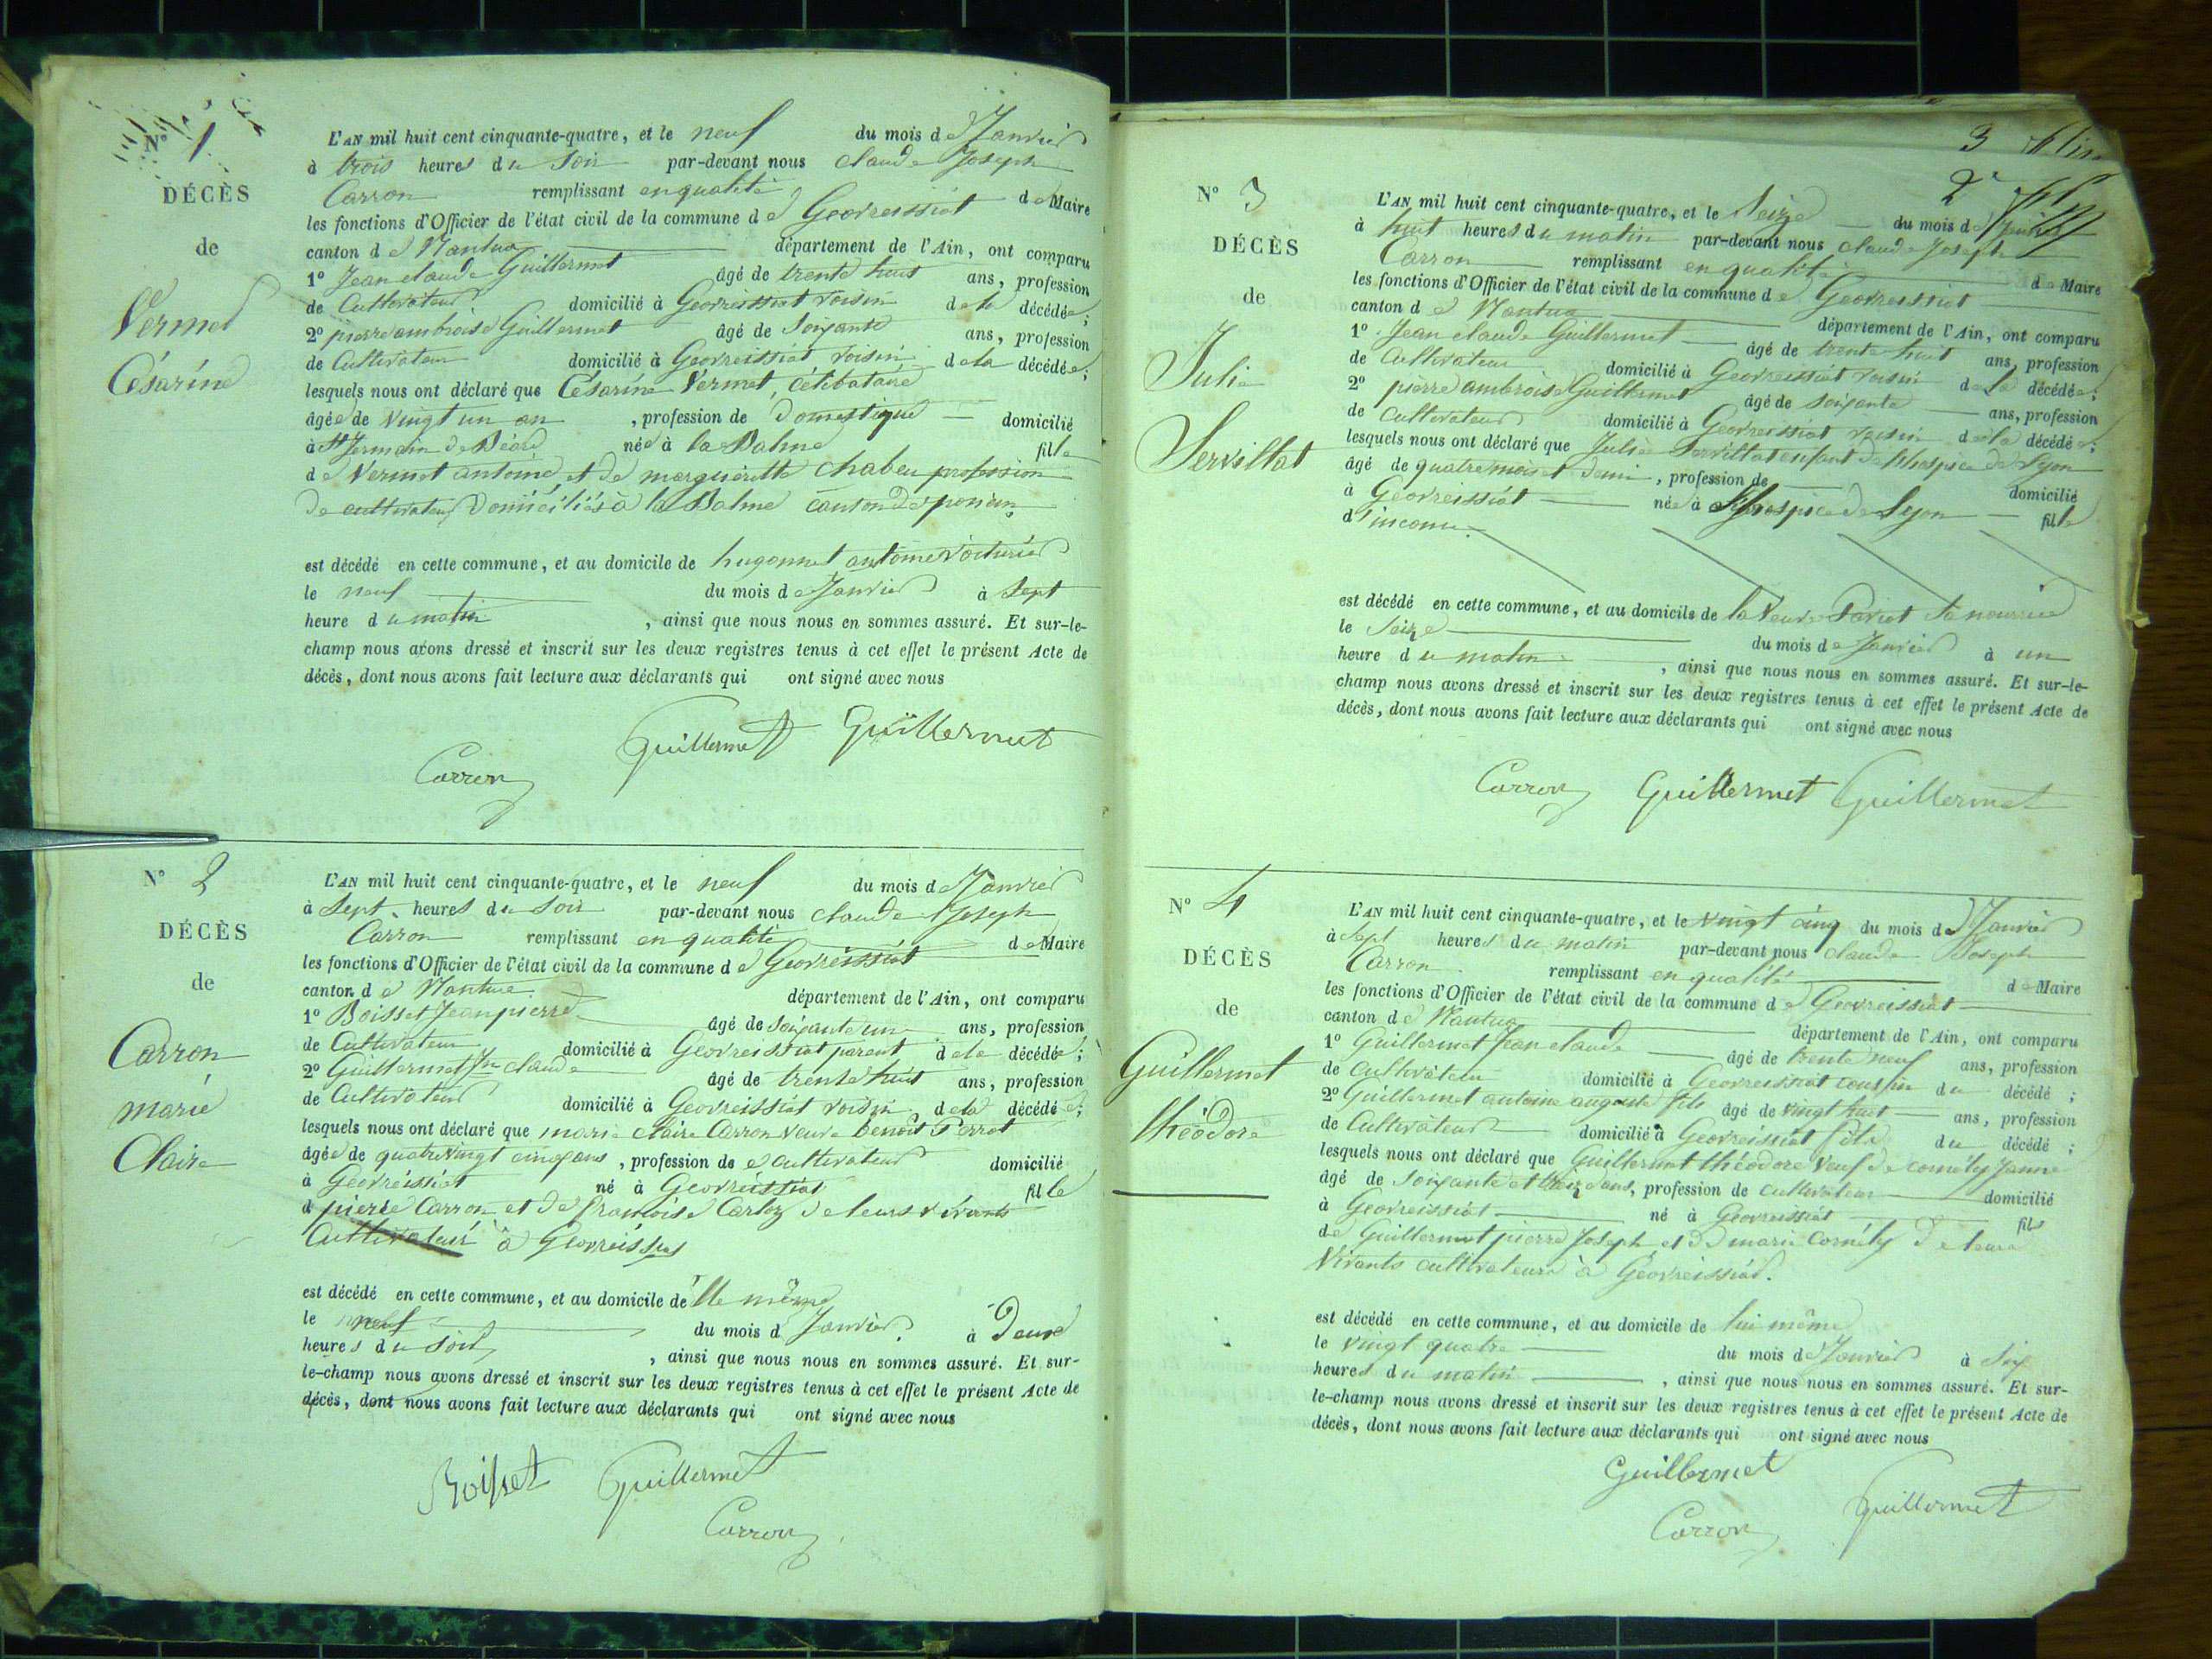 N° 1
DÉCÈS
de
Vermet
Césarine
L'AN mil huit cent cinquante-quatre, et le neuf du mois de Janvier
à trois heures du Soir par-devant nous claude Joseph
Carron remplissant en qualité de Maire
les fonctions d'Officier de l'état civil de la commune de Geovreissiat
canton de Nantua département de l'Ain, ont comparu
1° Jean claude Guillermet âgé de trente huit ans, profession
de Cultivateur domicilié à Geovreissiat voisin de la décédée;
2° pierre ambroise Guillermet âgé de Soixante ans, profession
de Cultivateur domicilié à Geovreissiat voisin de la décédée;
lesquels nous ont déclaré que Césarine Vermet, célibataire
âgée de vingt un an, profession de Domestique domicilié
à St Germain de Béard née à la Balme fille
de Vermet antoine et de marguerite Chabeu profession
de cultivateur Domiciliés à la Balme canton de poncin
est décédé en cette commune, et au domicile de hugonnet antoine voiturier
le neuf du mois de Janvier à Sept
heure du matin, ainsi que nous nous en sommes assuré. Et sur-le-
champ nous avons dressé et inscrit sur les deux registres tenus à cet effet le présent Acte de
décès, dont nous avons fait lecture aux déclarants qui ont signé avec nous
Guillermet Guillermet
Carron
N° 2
DÉCÈS
de
Carron
marie
Claire
L'AN mil huit cent cinquante-quatre, et le neuf du mois de Janvier
à Sept heures du Soir par-devant nous claude Joseph
Carron remplissant en qualité de Maire
les fonctions d'Officier de l'état civil de la commune de Geovreissiat
canton de Nantua département de l'Ain, ont comparu
1° Boisset Jean pierre âgé de Soixante un ans, profession
de Cultivateur domicilié à Geovreissiat parent de la décédée;
2° Guillermet Jn claude âgé de trente huit ans, profession
de Cultivateur domicilié à Geovreissiat voisin de la décédée;
lesquels nous ont déclaré que marie claire Carron veuve benoit Perrot
âgée de quatre vingt cinq ans, profession de cultivateur domicilié
à Geovreissiat né à Geovreissiat fille
d pierre Carron et de francoise Carloz de leurs vivants
Cultivateur à Geovreissiat
est décédé en cette commune, et au domicile de elle même
le neuf du mois d Janvier à Deux
heures du Soir, ainsi que nous nous en sommes assuré. Et sur-
le-champ nous avons dressé et inscrit sur les deux registres tenus à cet effet le présent Acte de
décès, dont nous avons fait lecture aux déclarants qui ont signé avec nous
Boisset Guillermet
Carron
3
2
N° 3
DÉCÈS
de
Julie
Servillat
L'AN mil huit cent cinquante-quatre, et le Seize du mois de Janvier
à huit heures du matin par-devant nous claude Joseph
Carron remplissant en qualité de Maire
les fonctions d'Officier de l'état civil de la commune de Geovreissiat
canton de Nantua département de l'Ain, ont comparu
1° Jean claude Guillermet âgé de trente huit ans, profession
de Cultivateur domicilié à Geovreissiat voisin de la décédée;
2° pierre ambroise Guillermet âgé de soixante ans, profession
de cultivateur domicilié à Geovreissiat voisin de la décédée;
lesquels nous ont déclaré que Julie Servillat enfant de l'hospice de Lyon
âgé de quatre mois et demi, profession de domicilié
à Geovreissiat née à l'hospice de Lyon fille
d'inconnu
est décédé en cette commune, et au domicils de la Veuve Pariot Sa nourrice
le Seize du mois de Janvier à un
heure du matin, ainsi que nous nous en sommes assuré. Et sur-le-
champ nous avons dressé et inscrit sur les deux registres tenus à cet effet le présent Acte de
décès, dont nous avons fait lecture aux déclarants qui ont signé avec nous
Carron Guillermet Guillermet
N° 4
DÉCÈS
de
Guillermet
théodore
L'AN mil huit cent cinquante-quatre, et le vingt cinq du mois de Janvier
à Sept heures du matin par-devant nous claude Joseph
Carron remplissant en qualité de Maire
les fonctions d'Officier de l'état civil de la commune de Geovreissiat
canton de Nantua département de l'Ain, ont comparu
1° Guillermet Jean claude âgé de trente neuf ans, profession
de cultivateur domicilié à Geovreissiat cousin du décédé;
2° Guillermet antoine auguste fils âgé de vingt huit ans, profession
de Cultivateur domicilié à Geovreissiat fils du décédé;
lesquels nous ont déclaré que Guillermet théodore Veuf de comély Janne
âgé de Soixante et treize ans, profession de cultivateur domicilié
à Geovreissiat né à Geovreissiat fils
de Guillermet pierre Joseph et de marie Comély De leurs
Vivants cultivateurs à Geovreissiat.
est décédé en cette commune, et au domicile de lui même
le vingt quatre du mois de Janvier à Six
heures du matin, ainsi que nous nous en sommes assuré. Et sur-
le-champ nous avons dressé et inscrit sur les deux registres tenus à cet effet le présent Acte de
décès, dont nous avons fait lecture aux déclarants qui ont signé avec nous
Guillermet
Carron Guillermet